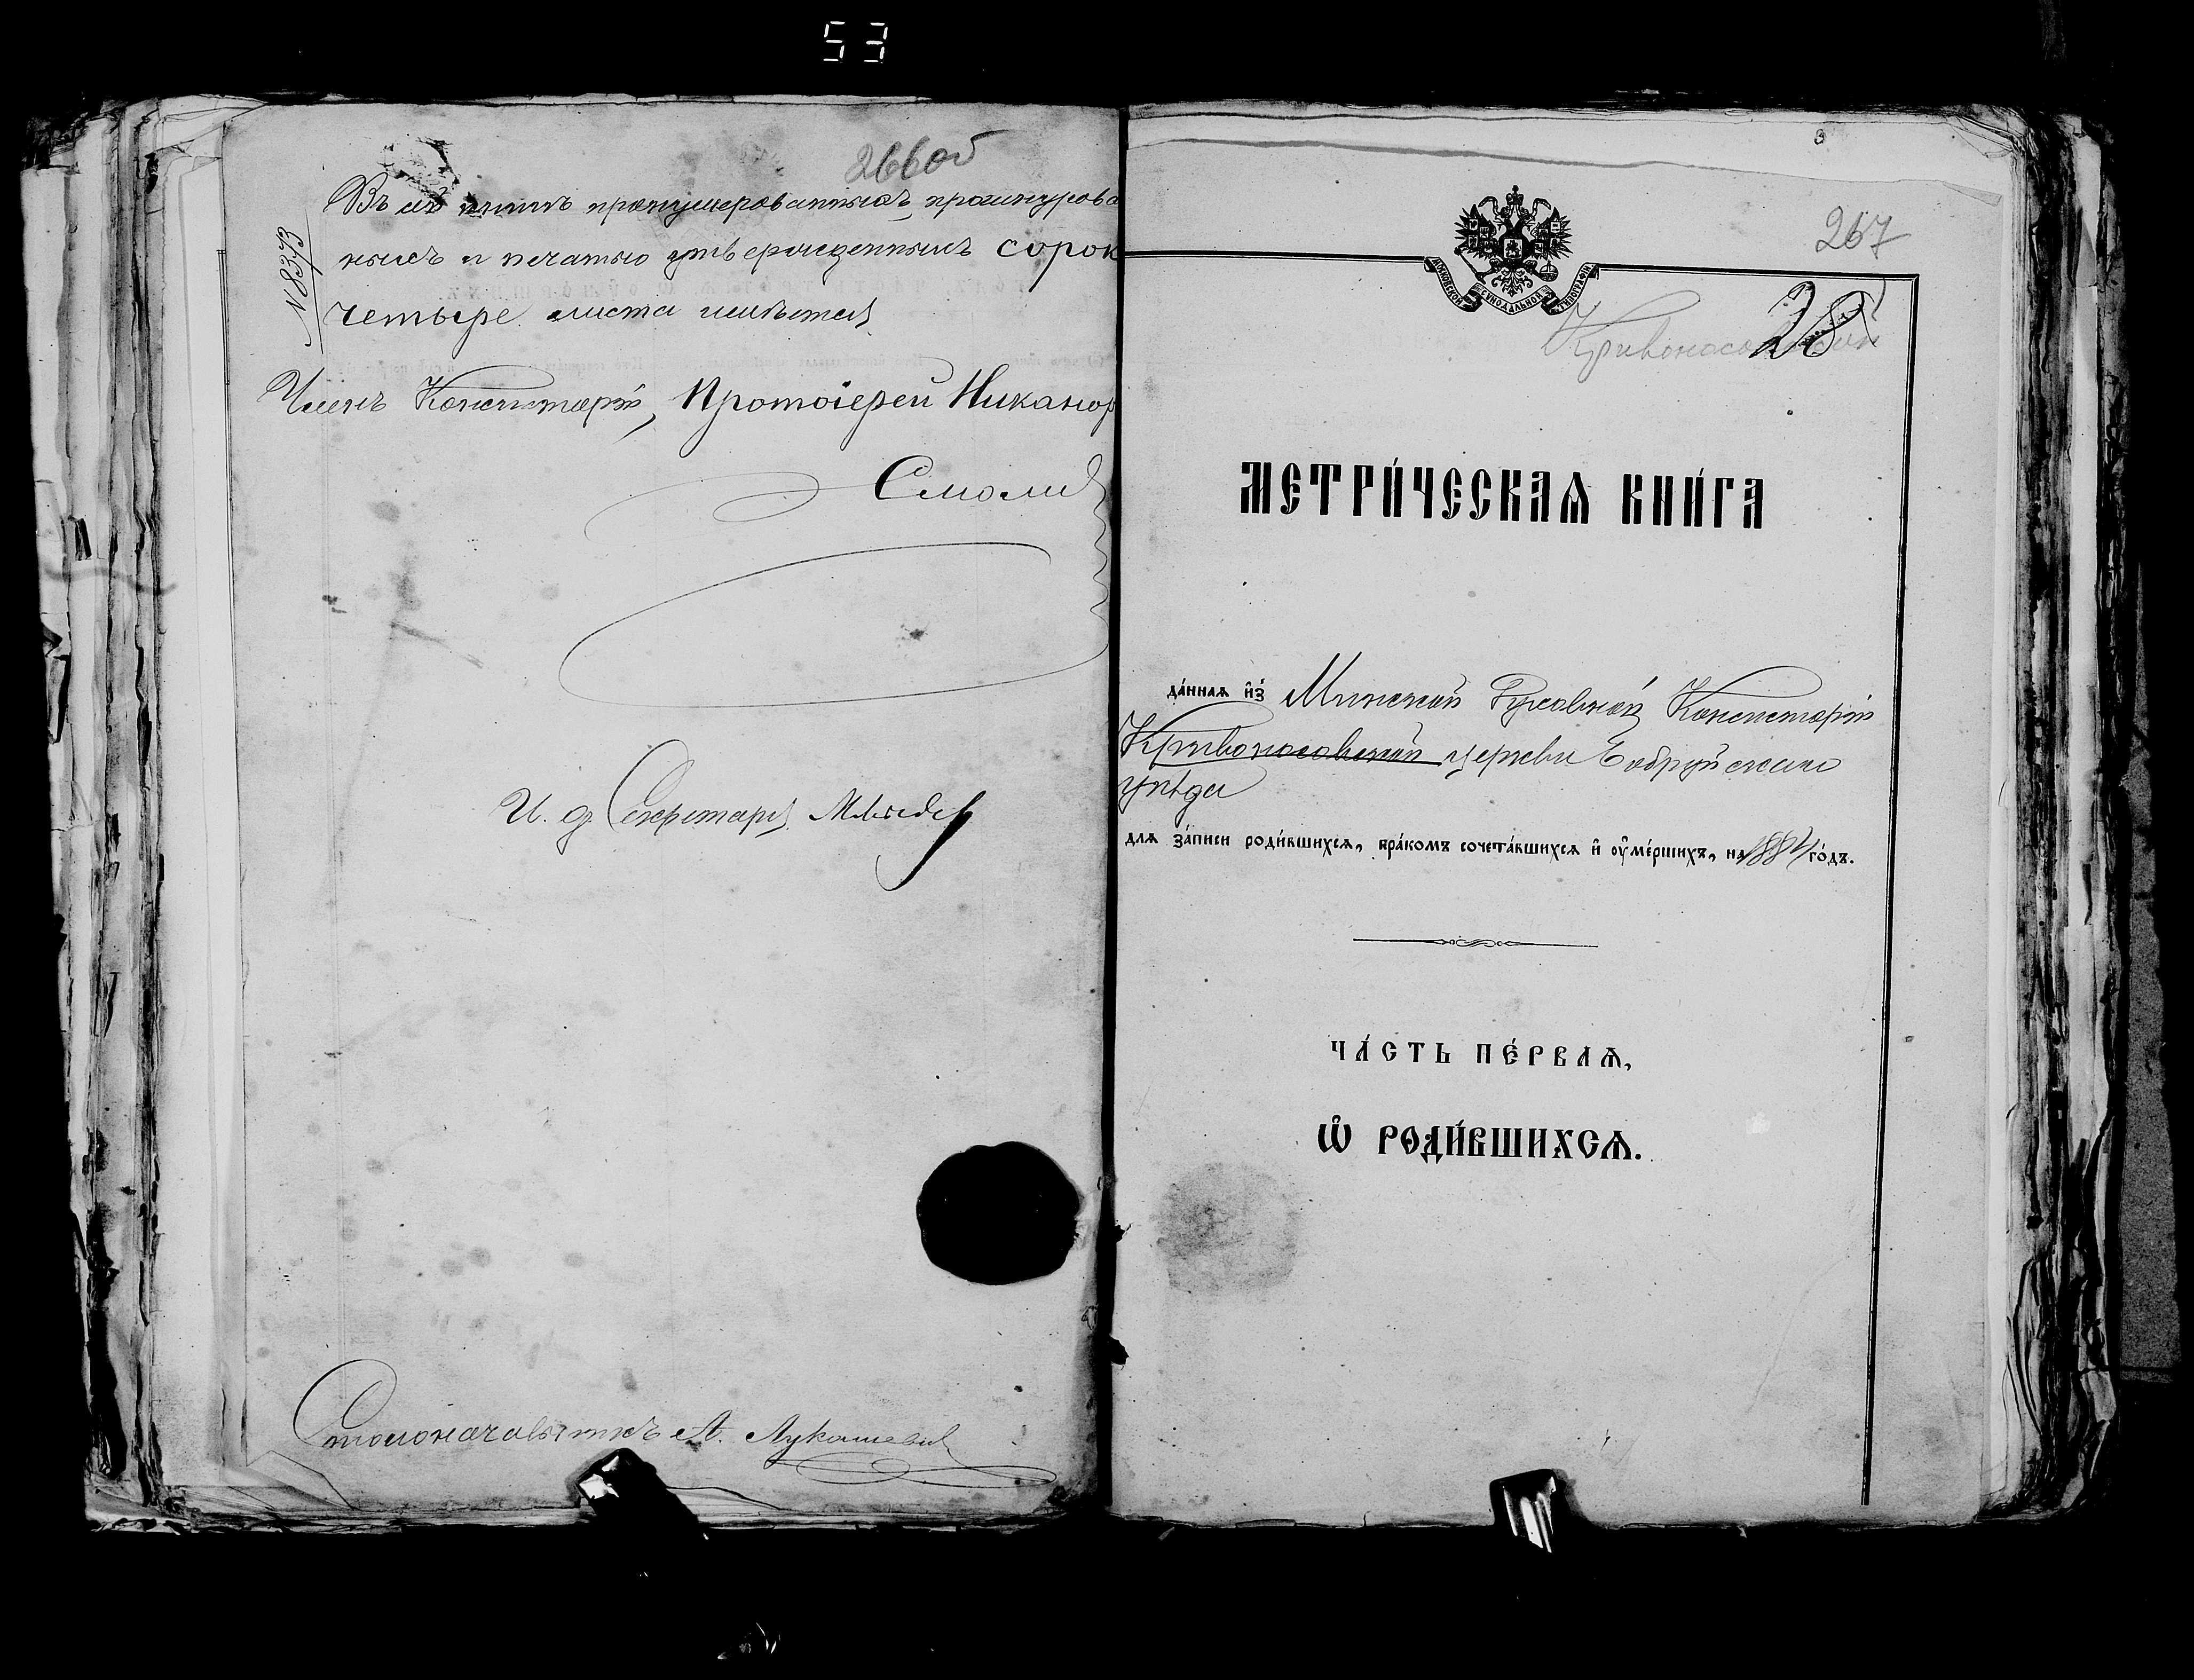 53
266об
Въ сей книгѣ пронумерованныхъ, прошнурова
ныхъ и печатью утвержденныхъ сорок
четыре листа имѣется
N 8373
Членъ Консисторіи, Протоіерей Никанор
Смолич
И. д. Секретаря
Столоначальникъ А. Лукашевич
267
МОСКОВСКОЙ СѴНОДАЛЬНОЙ ТИПОГРАФІИ
28
МЕТРИ́ЧЕСКАѦ КНИ́ГА
да́ннаѧ и҆з̾ Минской Духовной Консисторіи
Кривоносовской церкви Бобруйскаго
уѣзда
длѧ за́писи роди́вшихсѧ, бра́комъ сочета́вшихсѧ и҆ оу҆ме́ршихъ, на 1884 го́дъ.
ЧА́СТЬ ПЕ́РВАѦ,
Ѽ РОДИ́ВШИХСѦ.